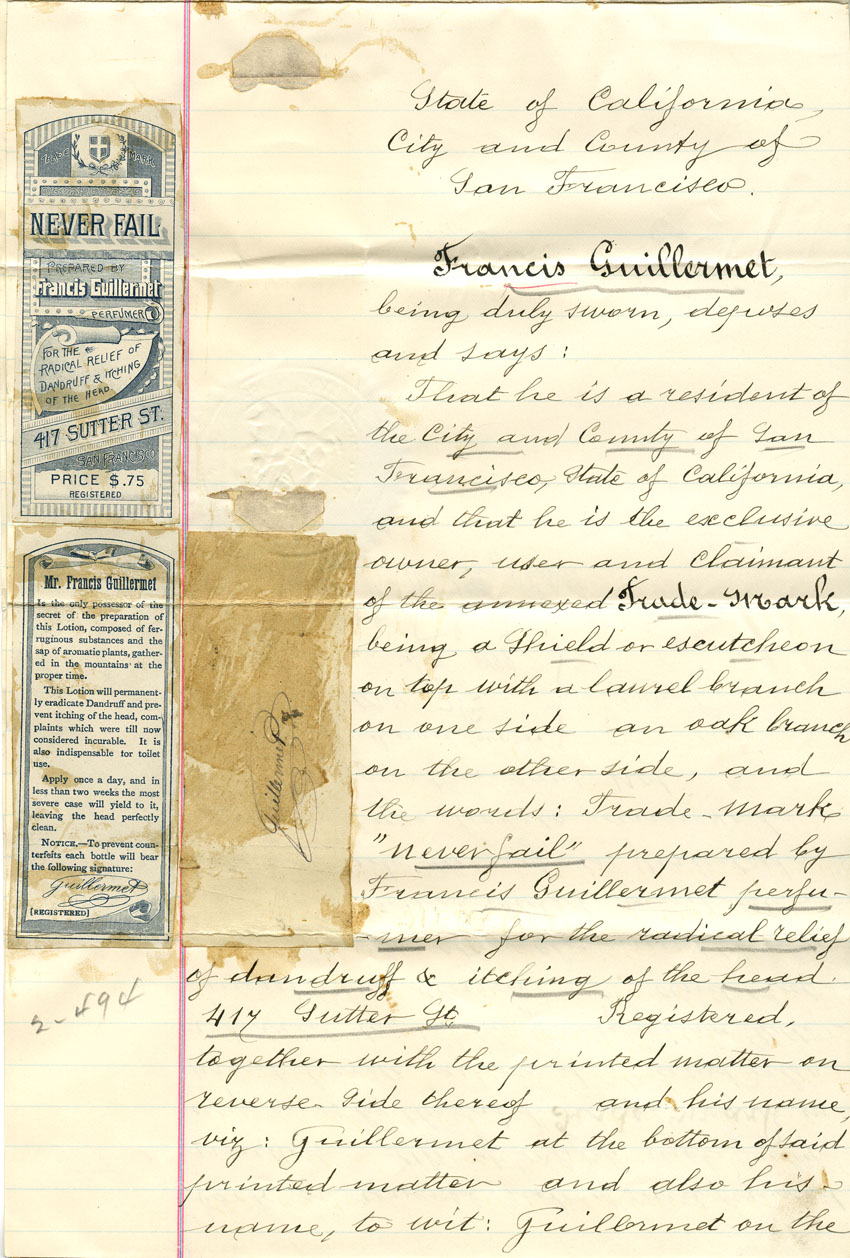 State of California,
City and County of
San Francisco.
Francis Guillermet,
being duly sworn, deposes
and says:
That he is a resident of
the City and County of San
Francisco, State of California,
and that he is the exclusive
owner, user and claimant
of the annexed Trade-Mark,
being a Shield or escutcheon
on top with a laurel branch
on one side an oak branch
on the other side, and
the words: Trade-Mark
"Never fail" prepared by
Francis Guillermet perfu-
mer for the radical relief
of dandruff & itching of the head.
417 Sutter St. Registered,
together with the printed matter on
reverse side thereof and his name,
viz: Guillermet at the bottom of said
printed matter and also his
name, to wit: Guillermet on the
TRADE MARK
NEVER FAIL
PREPARED BY
Francis Guillermet
PERFUMER
FOR THE
RADICAL RELIEF OF
DANDRUFF & ITCHING
OF THE HEAD
417 SUTTER ST.
SAN FRANCISCO
PRICE $.75
REGISTERED
Mr. Francis Guillermet
Is the only possessor of the
secret of the preparation of
this Lotion, composed of fer-
ruginous substances and the
sap of aromatic plants, gather-
ed in the mountains at the
proper time.
This Lotion will permanent-
ly eradicate Dandruff and pre-
vent itching of the head, com-
plaints which were till now
considered incurable. It is
also indispensable for toilet
use.
Apply once a day, and in
less than two weeks the most
severe case will yield to it,
leaving the head perfectly
clean.
NOTICE.—To prevent coun-
terfeits each bottle will bear
the following signature:
Guillermet
[REGISTERED]
Guillermet
2-494